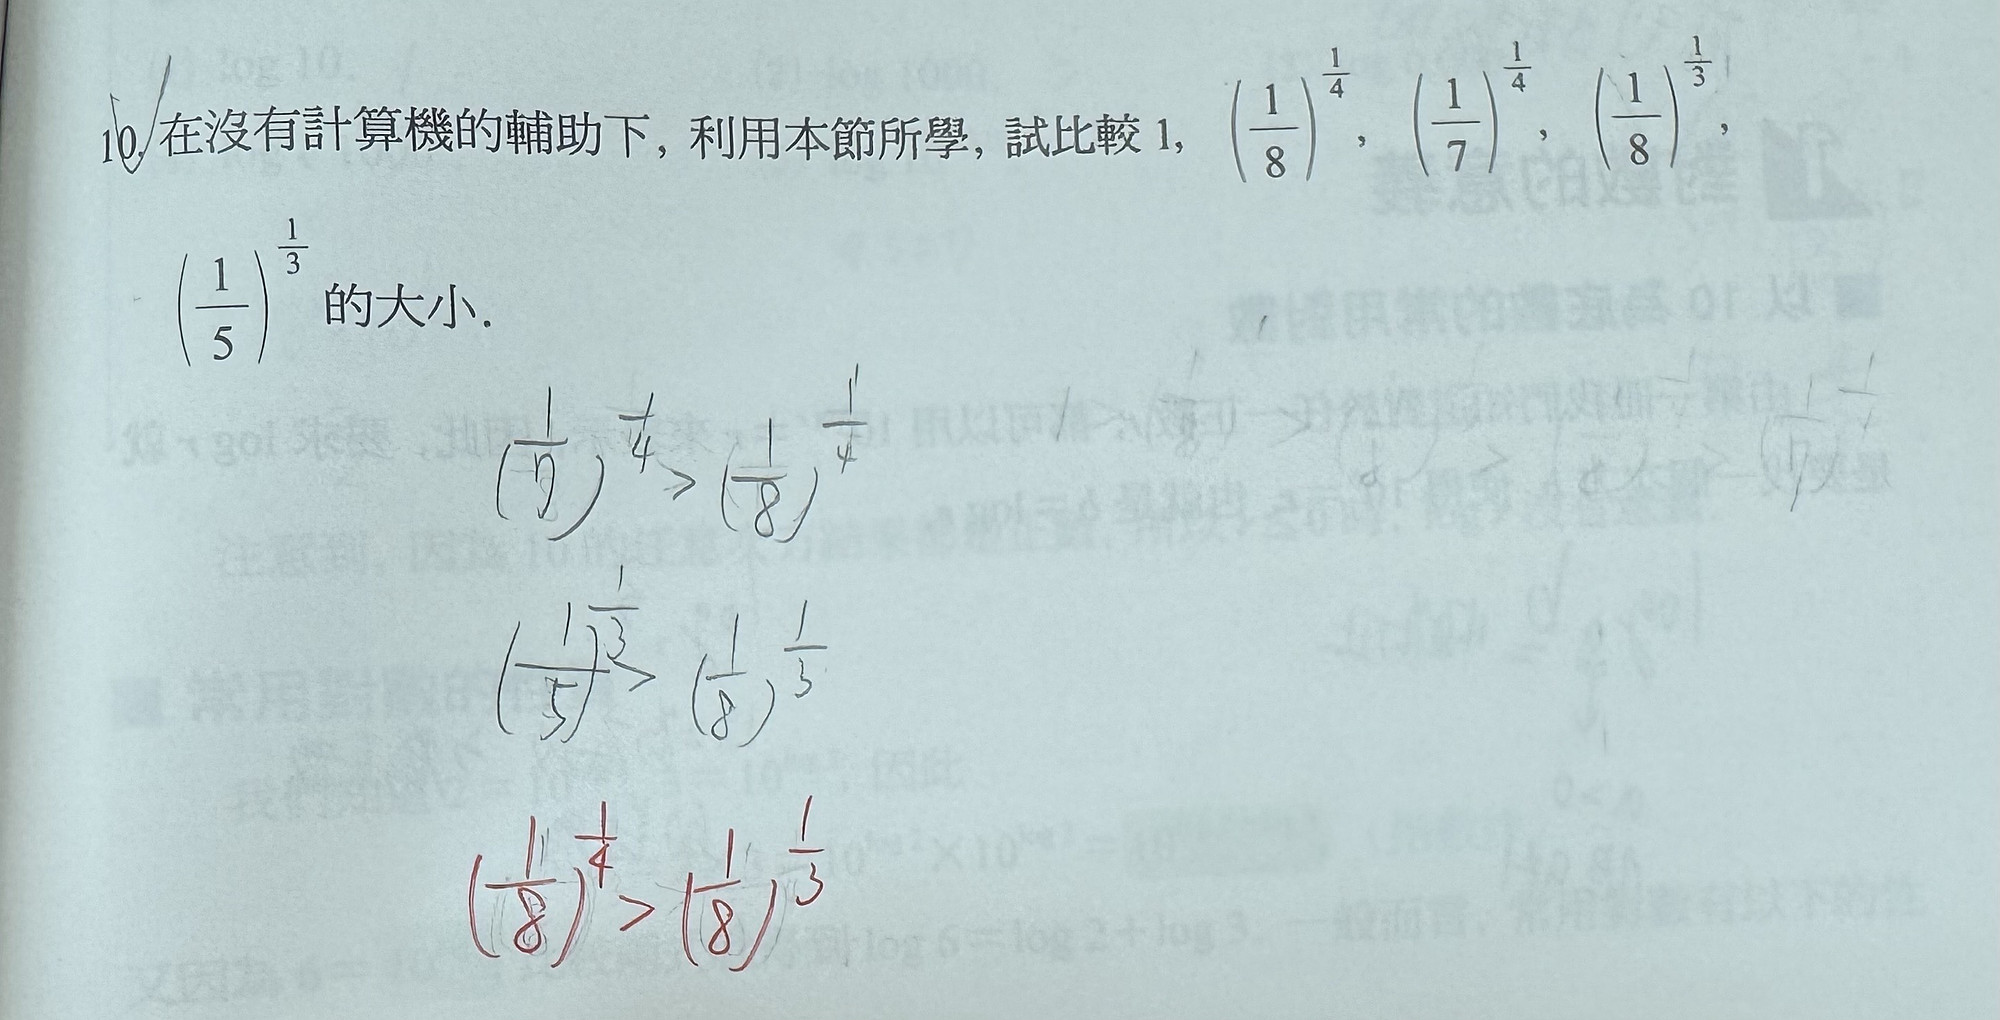 10. 在沒有計算機的輔助下, 利用本節所學, 試比較 1, (1/8)^(1/4), (1/7)^(1/4), (1/8)^(1/3),
(1/5)^(1/3) 的大小.
(1/7)^(1/4) > (1/8)^(1/4)
(1/5)^(1/3) > (1/8)^(1/3)
(1/8)^(1/4) > (1/8)^(1/3)